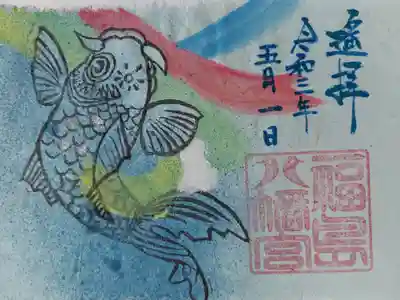 遥拝
令和三年
五月一日
福島
八幡宮